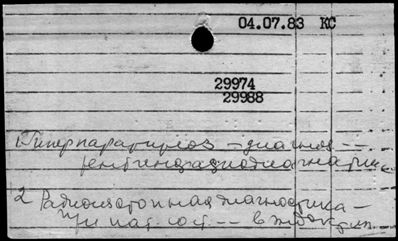 04.07.83 КС
29974
29988
1. Гиперпаратиреоз – диагноз --
рентгенорадиодиагностик
2 Радиоизотопная диагностика –
при пат. сост. -- в эндокрин.